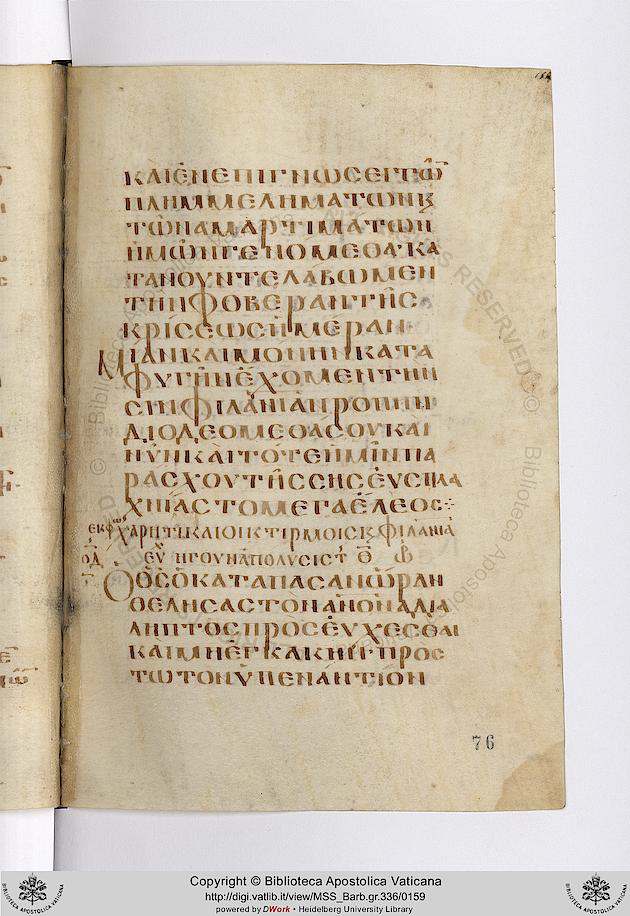 ΚΑΙ ἘΝ ΕΠΙΓΝΩΣΕΙ ΤΩ͂
ΠΛΗΜΜΕΛΗΜΑΤΩΝ Κ̀
ΤΩΝ ΑΜΑΡΤΙΜΑΤΩΝ
ΗΜΩΝ ΓΕΝΟΜΕΘΑ· ΚΑ
ΤΑΝΟΥΝΤΕΣ ΛΑΒΩΜΕΝ
ΤΗΝ ΦΟΒΕΡΑΝ ΤΗΣ
ΚΡΙΣΣΕΩΣ ἩΜΕΡΑΝ·
ΜΙΑΝ ΚΑΙ ΜΟΝΗΝ ΚΑΤΑ
ΦΥΓῊΝ ἘΧΟΜΕΝ ΤΗΝ
ΣΙΝ ΦΙΛΑΝΙΑΝ ΠΡΟΠΗΝ
ΔΙΟ ΔΕΟΜΕΘΑ ΣΟΥ ΚΑΙ
ΝΥ͂Ν ΚΑΙ ΤΟΤΕ ἩΜΙ͂Ν ΠΑ
ΡΑΣΧΟΥ ΤΗΣ ΣΗΣ ἘΥΣΠΛΑ
ΧΝΙΑΣ ΤΟ ΜΕΓΑ ἜΛΕΟΣ⁘
ΕΚΦΩ ΧΑΡΗΤΙ ΚΑΙ ΟΙΚΤΙΡΜΟΙΣ Κ̀ ΦΙΛΑΝΙΑ
ΕΥ ΗΓΟΥΝ ΑΠΟΛΥΣΙΣ Τ Θ Ω
Ὁ Θ̅Σ̅ Ὁ ΚΑΤΑ ΠΑΣΑΝ ὩΡΑΝ
ΘΕΛΗΣΑΣ ΤΟΝ ΑΝΟΝ ΑΔΙΑ
ΛΗΠΤΟΣ ΠΡΟΣΕΥΧΕΣΘΑΙ
ΚΑΙ ΜΗ ἘΓΚΑΚΗΝ ΠΡΟΣ
ΤΩ ΤΟΝ ὙΠΕΝΑΝΤΙΟΝ
76
Copyright © Biblioteca Apostolica Vaticana
http://digi.vatlib.it/view/MSS_Barb.gr.336/0159
powered by DWork • Heidelberg University Library